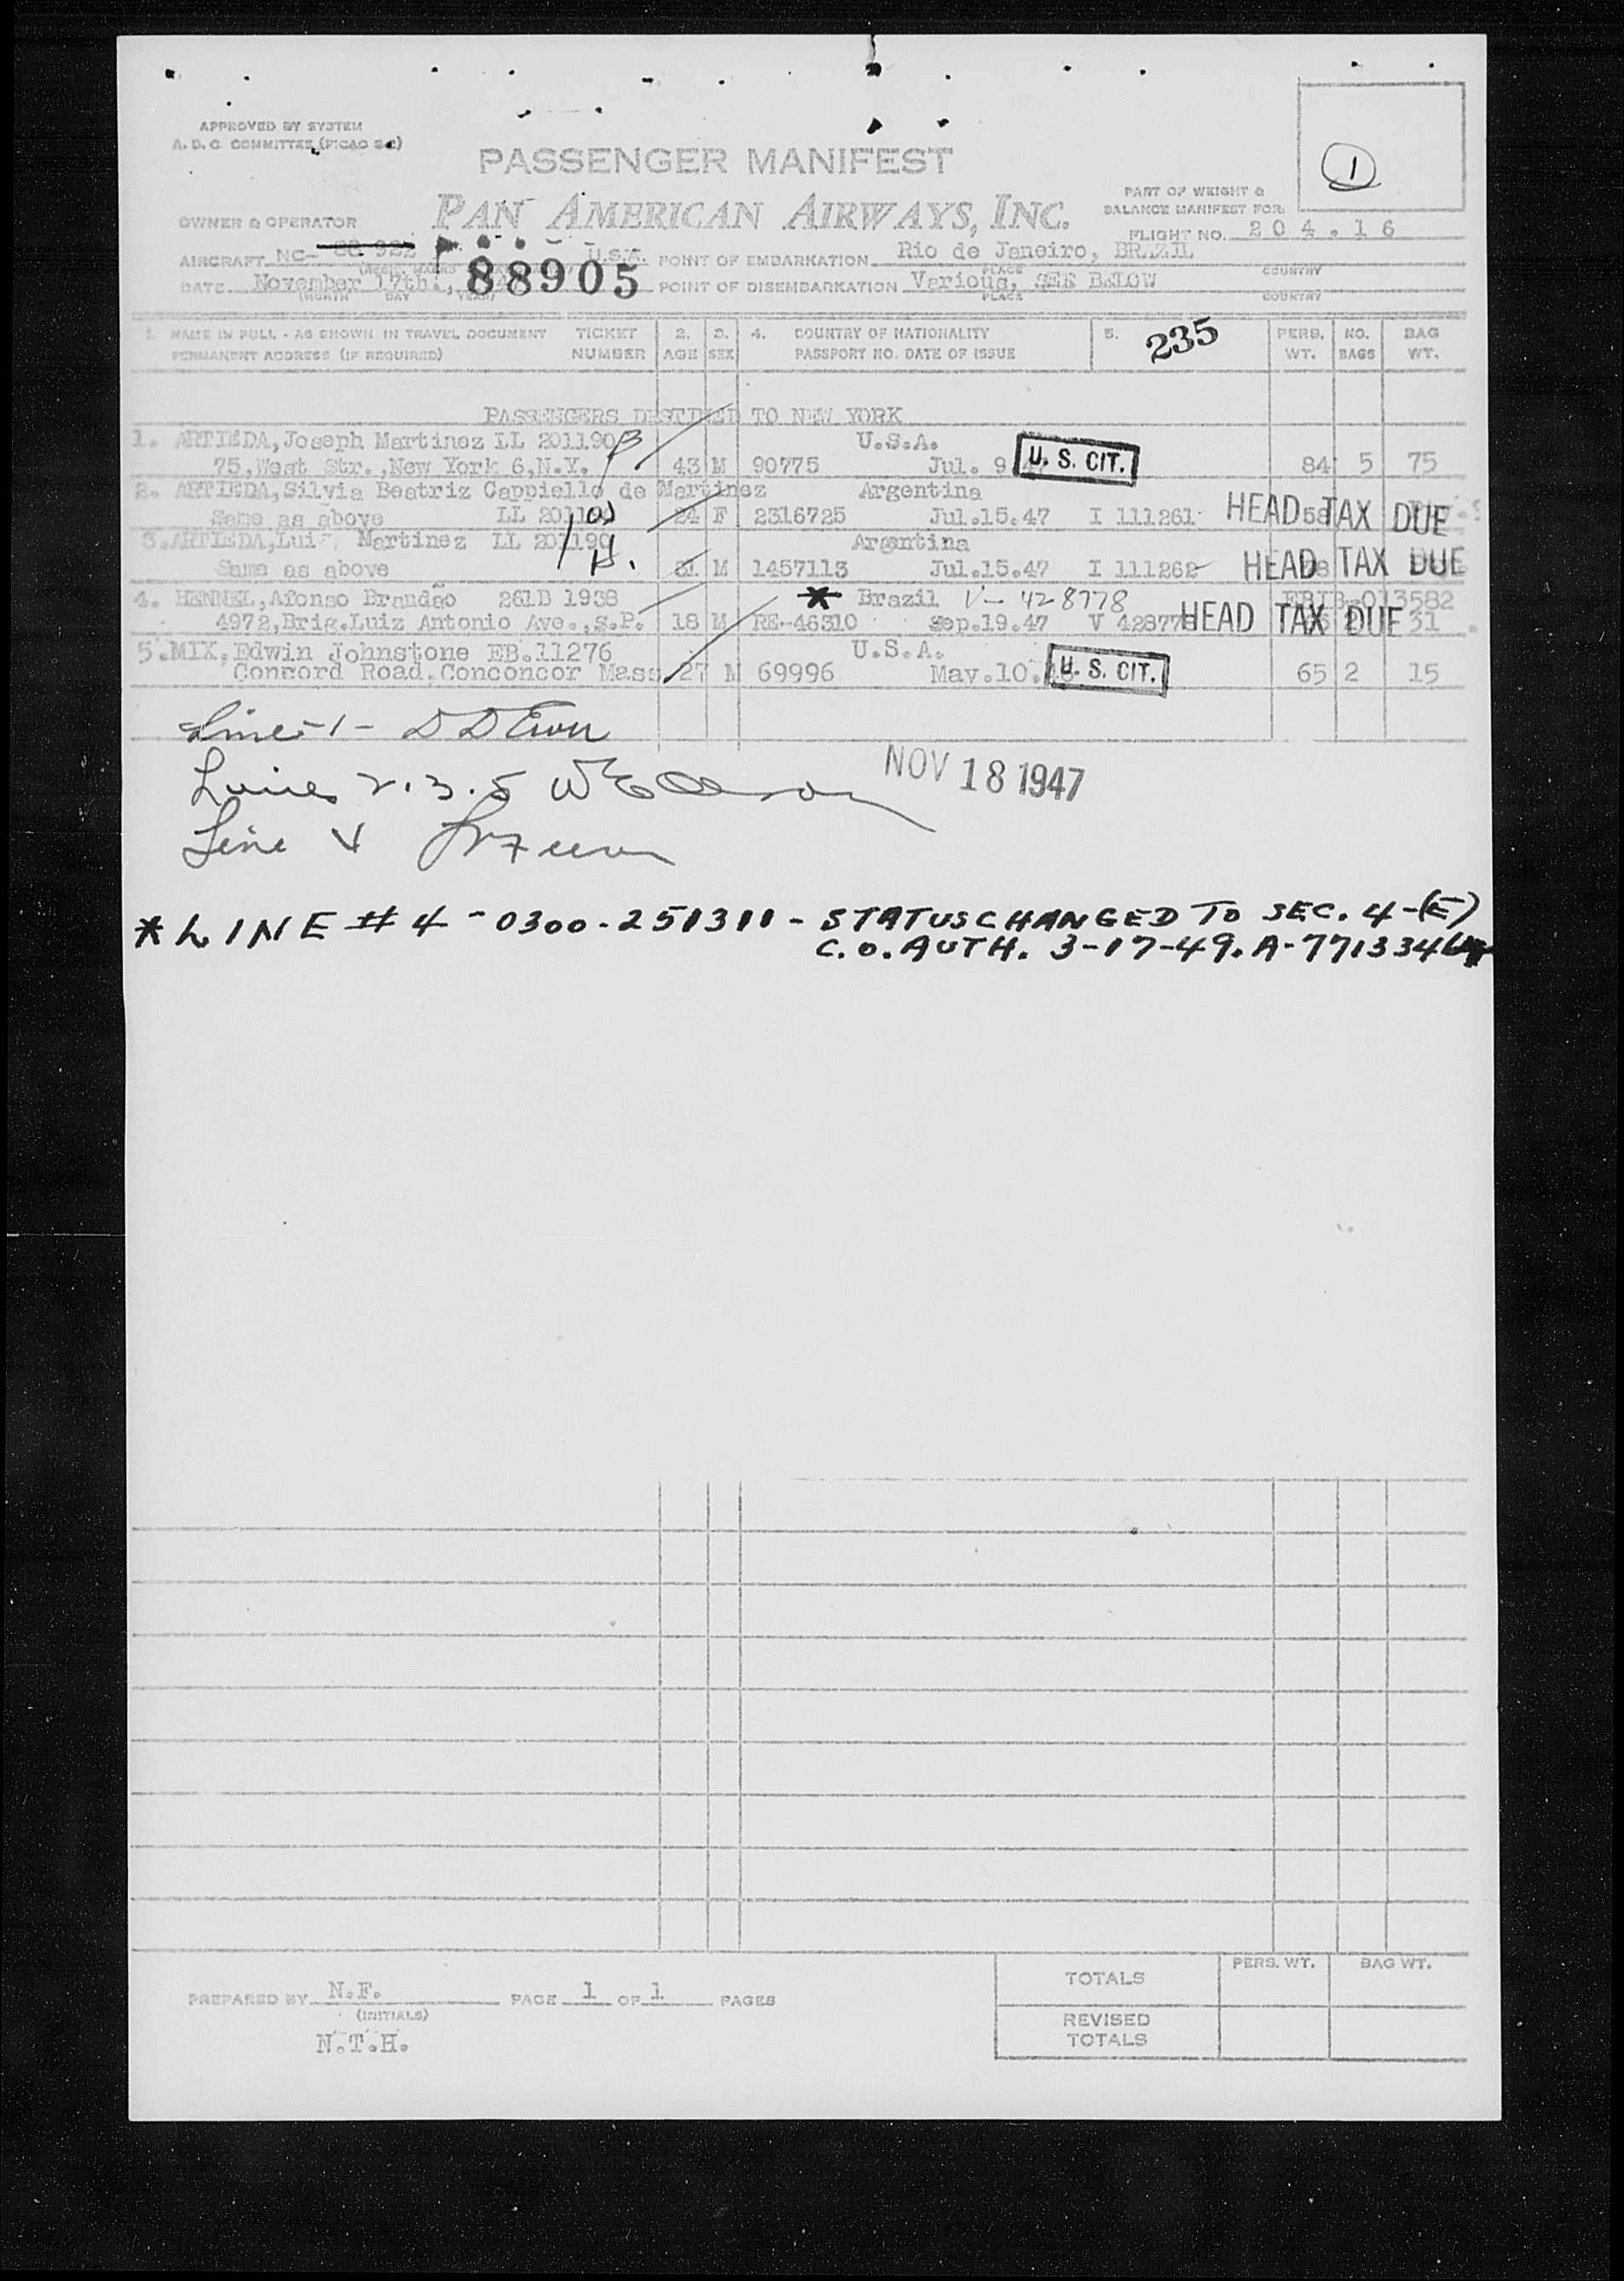 APPROVED BY SYSTEM
A. D. C. COMMITTEE (PICAO
1
PASSENGER MANIFEST
PART OF WEIGHT &
BALANCE MANIFEST FOR:
OWNER & OPERATOR PAN AMERICAN AIRWAYS, INC.
FLIGHT NO. 204.16
AIRCRAFT NC- U.S.A. POINT OF EMBARKATION Rio de Janeiro, BRAZIL
PLACE COUNTRY
88905
DATE November 17th., POINT OF DISEMBARKATION Various, SEE BELOW
(MONTH DAY YEAR) PLACE COUNTRY
1. NAME IN FULL - AS SHOWN IN TRAVEL DOCUMENT TICKET 2. 3. 4. COUNTRY OF NATIONALITY 5. 235 PERS. NO. BAG
PERMANENT ADDRESS (IF REQUIRED) NUMBER AGE SEX PASSPORT NO. DATE OF ISSUE WT. BAGS WT.
PASSENGERS DESTINED TO NEW YORK
1. ARTIEDA,Joseph Martinez LL 201190 U.S.A.
75,West Str.,New York 6,N.Y. 43 M 90775 Jul. 9 U. S. CIT. 84 5 75
2. ARTIEDA,Silvia Beatriz Cappiello de Martinez Argentina
Same as above LL 201190 24 F 2316725 Jul.15.47 I 111261 58 HEAD TAX DUE
3.ARTIEDA,Luiz Martinez LL 201190 Argentina
Same as above M 1457113 Jul.15.47 I 111262 HEAD TAX DUE
4. HENNEL,Afonso Brandão 261B 1938 * Brazil V- 428778
4972,Brig.Luiz Antonio Ave.,S.P. 18 M RE-46310 Sep.19.47 V 428778 HEAD TAX DUE 31
5.MIX,Edwin Johnstone EB.11276 U.S.A.
Conrord Road,Conconcor Mass 27 M 69996 May.10. U. S. CIT. 65 2 15
Line 1 -
NOV 18 1947
Lines 2.3.5
Line 4
* LINE # 4 - 0300-251311 - STATUS CHANGED TO SEC. 4-(E)
C.O. AUTH. 3-17-49. A-
PREPARED BY N.F. PAGE 1 OF 1 PAGES
(INITIALS)
N.T.H.
PERS. WT. BAG WT.
TOTALS
REVISED
TOTALS